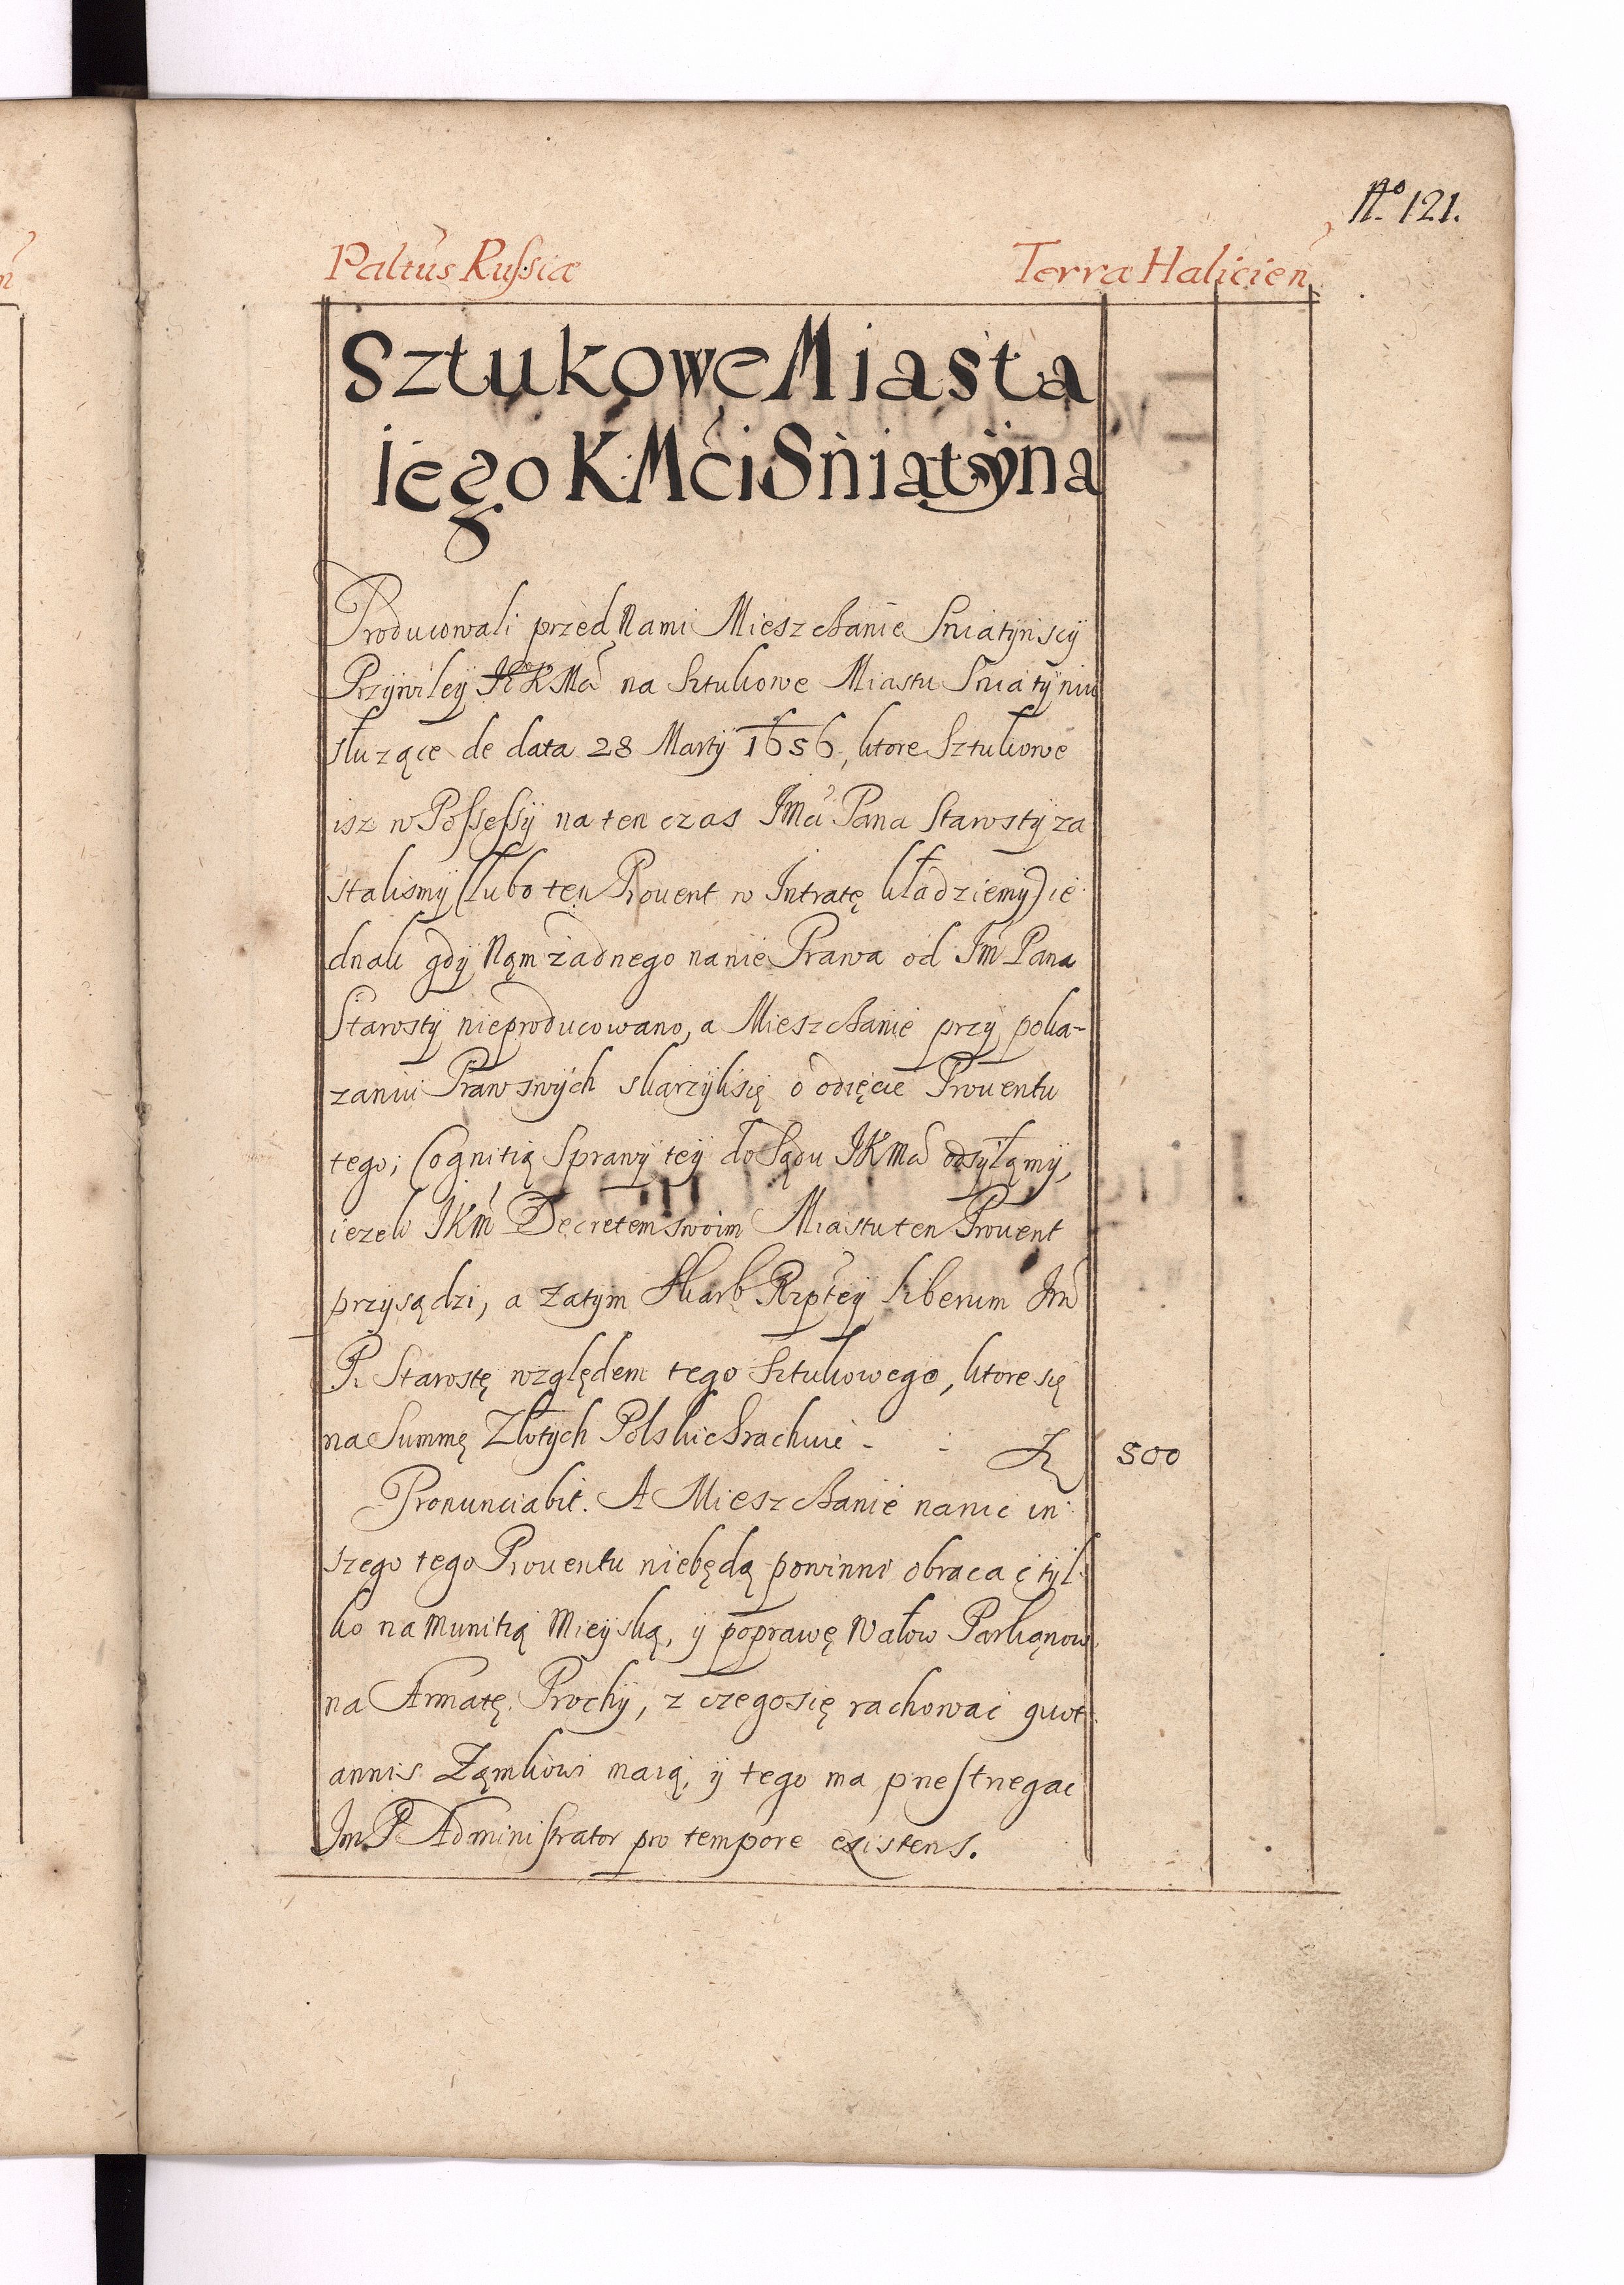 No. 121.
Paltus Russiæ Terræ Halicien
Sztukowe Miasta
iego K Mći Sniatyna
Producowali przed Nami Mieszchanie Sniatynscÿ
Przÿwileÿ JKMći na Sztukowe Miastu Sniatÿniu
służące de data 28 Martÿ 1656, ktore Sztukowe
isz w Possessÿ na ten czas JMći Pana Starostÿ za
stalismÿ (lubo ten Prouent w Intratę kładziemÿ) ie
dnak gdÿ Nąm żadnego nanie Prawa od Jm Pana
Starostÿ nieproducowano, a Mieszchanie przÿ poka-
zaniu Praw swÿch skarżÿlisię o odięcie Prouentu
tego; Cognitią Sprawÿ teÿ do Sądu JKMći odsÿłąmÿ,
iezeli JKm Decretem swoim Miastu ten Prouent
przÿsądzi, a zatÿm Skarb Rzpteÿ liberum Jm
P. Starostę względem tego Sztukowego, ktore się
na Summę Złotÿch Polskich rachuie - - Zł 500
Pronunciabit. A Mieszchanie nanic in
szego tego Prouentu niebędą powinni obracać tÿl
ko na Munitią Mieÿską, ÿ poprawę Wałow Parkąnow
na Armatę, Prochÿ, z czegosię rachować quot
annis Ząmkowi maią, ÿ tego ma przestrzegać
Jm P Administrator pro tempore existens.